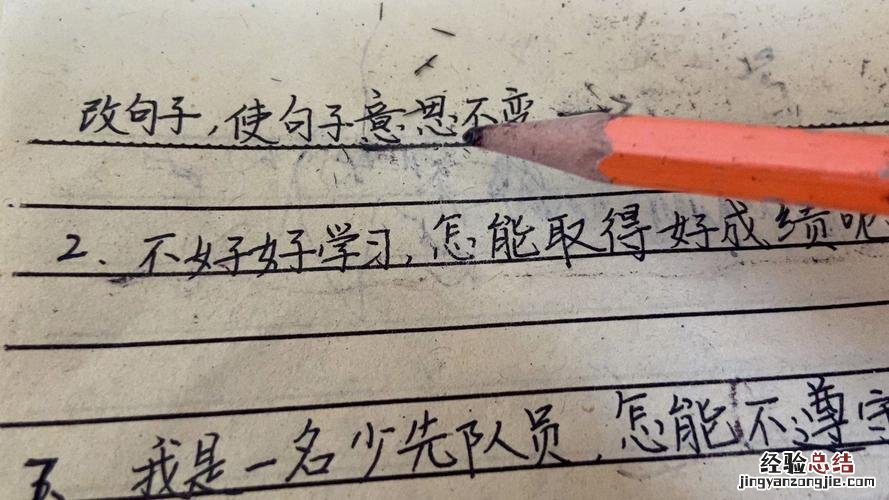 改句子,使句子意思不变
2、不好好学习,怎能取得好成绩呢
我是一名少先队员,怎能不遵守
经验总结
jingyanzongjie.com